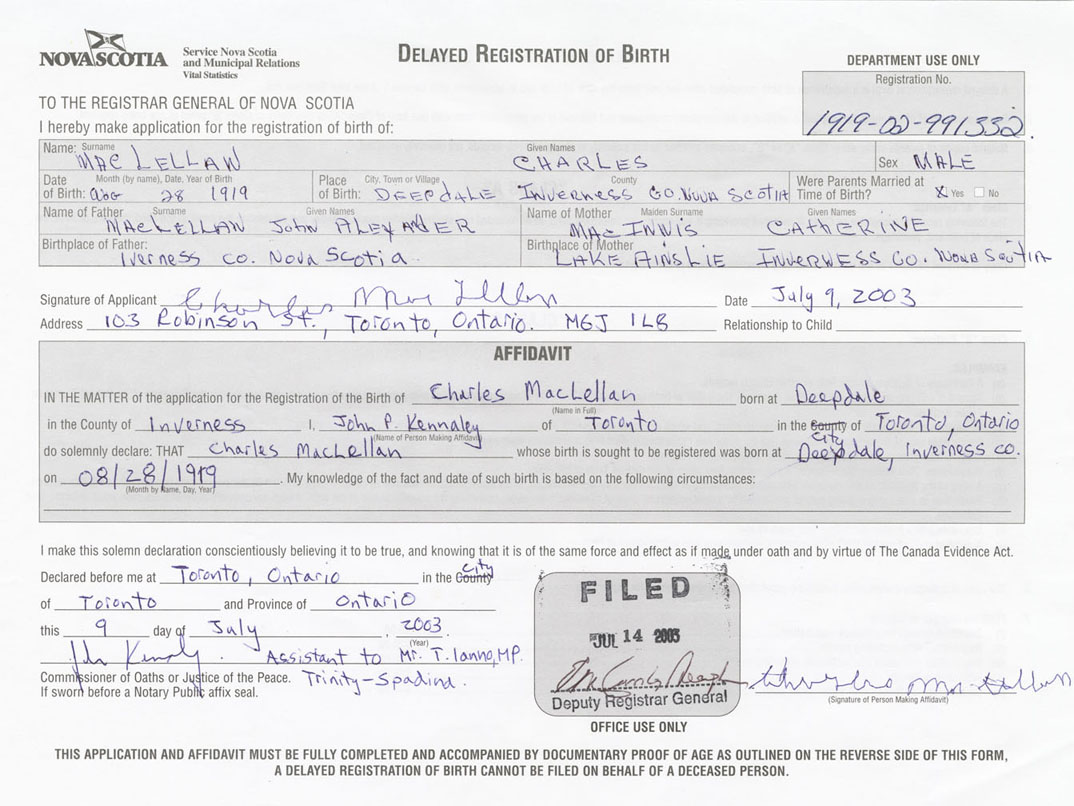 NOVA SCOTIA
Service Nova Scotia
and Municipal Relations
Vital Statistics
DELAYED REGISTRATION OF BIRTH
DEPARTMENT USE ONLY
Registration No.
1919-02-991332
TO THE REGISTRAR GENERAL OF NOVA SCOTIA
I hereby make application for the registration of birth of:
Name: Surname MAC LELLAN Given Names CHARLES Sex MALE
Date of Birth: Month (by name), Date, Year of Birth Aug 28 1919 Place of Birth: City, Town or Village DEEPDALE County INVERNESS CO. NOVA SCOTIA Were Parents Married at Time of Birth? X Yes No
Name of Father Surname MACLELLAN Given Names JOHN ALEXANDER Name of Mother Maiden Surname MAC INNIS Given Names CATHERINE
Birthplace of Father: IVERNESS CO. NOVA SCOTIA. Birthplace of Mother LAKE AINSLIE INVERNESS CO. NOVA SCOTIA
Signature of Applicant Charles MacLellan Date July 9, 2003
Address 103 Robinson St., Toronto, Ontario. M6J 1L8 Relationship to Child
AFFIDAVIT
IN THE MATTER of the application for the Registration of the Birth of Charles MacLellan born at Deepdale
(Name in Full)
in the County of Inverness I, John P. Kennaley of Toronto in the County City of Toronto, Ontario
(Name of Person Making Affidavit)
do solemnly declare: THAT Charles MacLellan whose birth is sought to be registered was born at Deepdale, Inverness co.
on 08/28/1919. My knowledge of the fact and date of such birth is based on the following circumstances:
(Month by Name, Day, Year)
I make this solemn declaration conscientiously believing it to be true, and knowing that it is of the same force and effect as if made under oath and by virtue of The Canada Evidence Act.
Declared before me at Toronto, Ontario in the County City
of Toronto and Province of Ontario
this 9 day of July, 2003
(Year)
Assistant to Mr. T. Ianno, MP.
Commissioner of Oaths or Justice of the Peace. Trinity-Spadina.
If sworn before a Notary Public affix seal.
FILED
JUL 14 2003
Deputy Registrar General
OFFICE USE ONLY
Charles MacLellan
(Signature of Person Making Affidavit)
THIS APPLICATION AND AFFIDAVIT MUST BE FULLY COMPLETED AND ACCOMPANIED BY DOCUMENTARY PROOF OF AGE AS OUTLINED ON THE REVERSE SIDE OF THIS FORM,
A DELAYED REGISTRATION OF BIRTH CANNOT BE FILED ON BEHALF OF A DECEASED PERSON.